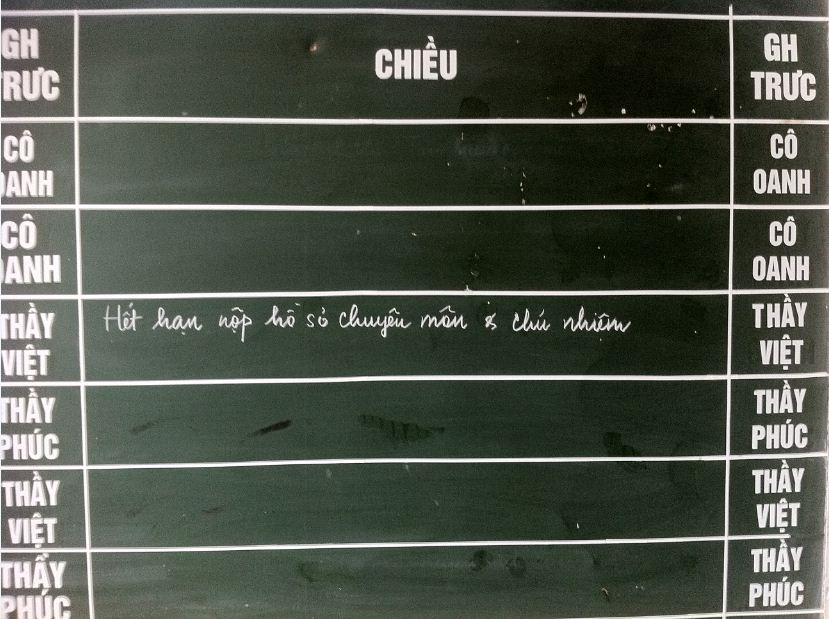 GH CHIỀU GH
TRƯC TRƯC
CÔ CÔ
OANH OANH
CÔ CÔ
OANH OANH
THẦY Hết hạn nộp hồ sơ chuyên môn & chủ nhiệm THẦY
VIỆT VIỆT
THẦY THẦY
PHÚC PHÚC
THẦY THẦY
VIỆT VIỆT
THẦY THẦY
PHÚC PHÚC